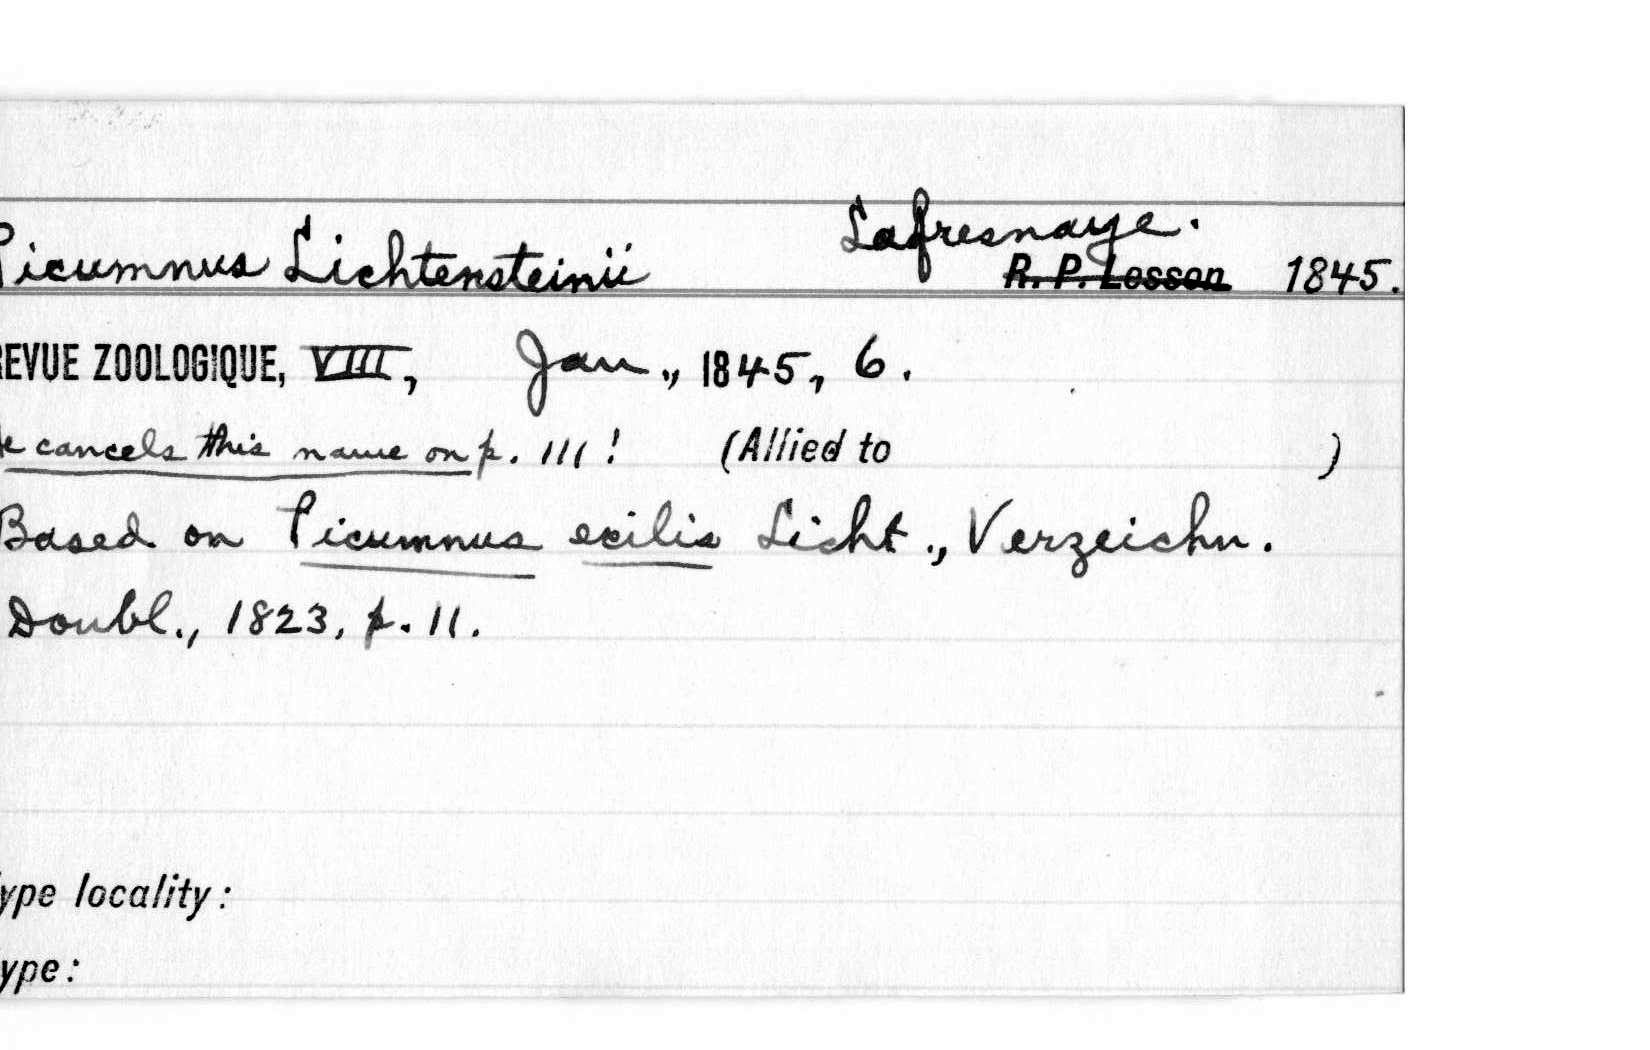 Lafresnaye.
Picumnus Lichtensteinii R. P. Lesson 1845.
REVUE ZOOLOGIQUE, VIII, Jan., 1845, 6.
He cancels this name on p. 111! (Allied to )
Based on Picumnus exilis Licht., Verzeichn.
Doubl., 1823, p. 11.
Type locality:
Type: